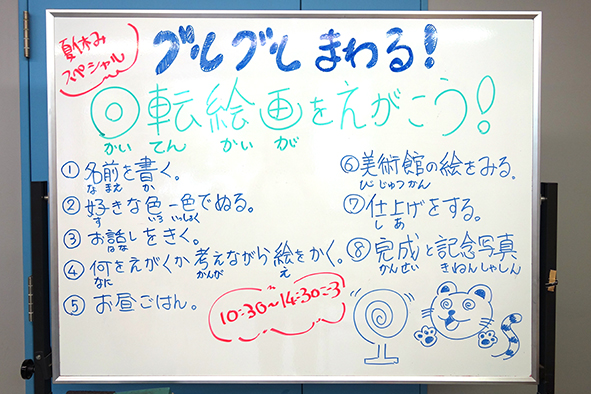 夏休み
スペシャル
グルグルまわる!
回転絵画をえがこう!
かい てん かい が
① 名前を書く。
なまえ か
② 好きな色一色でぬる。
す いろ いっしょく
③ お話しをきく。
はな
④ 何をえがくか考えながら絵をかく。
なに かんが え
⑤ お昼ごはん。
⑥ 美術館の絵をみる。
びじゅつかん
⑦ 仕上げをする。
し あ
⑧ 完成と記念写真
かんせい きねんしゃしん
10:30~14:30